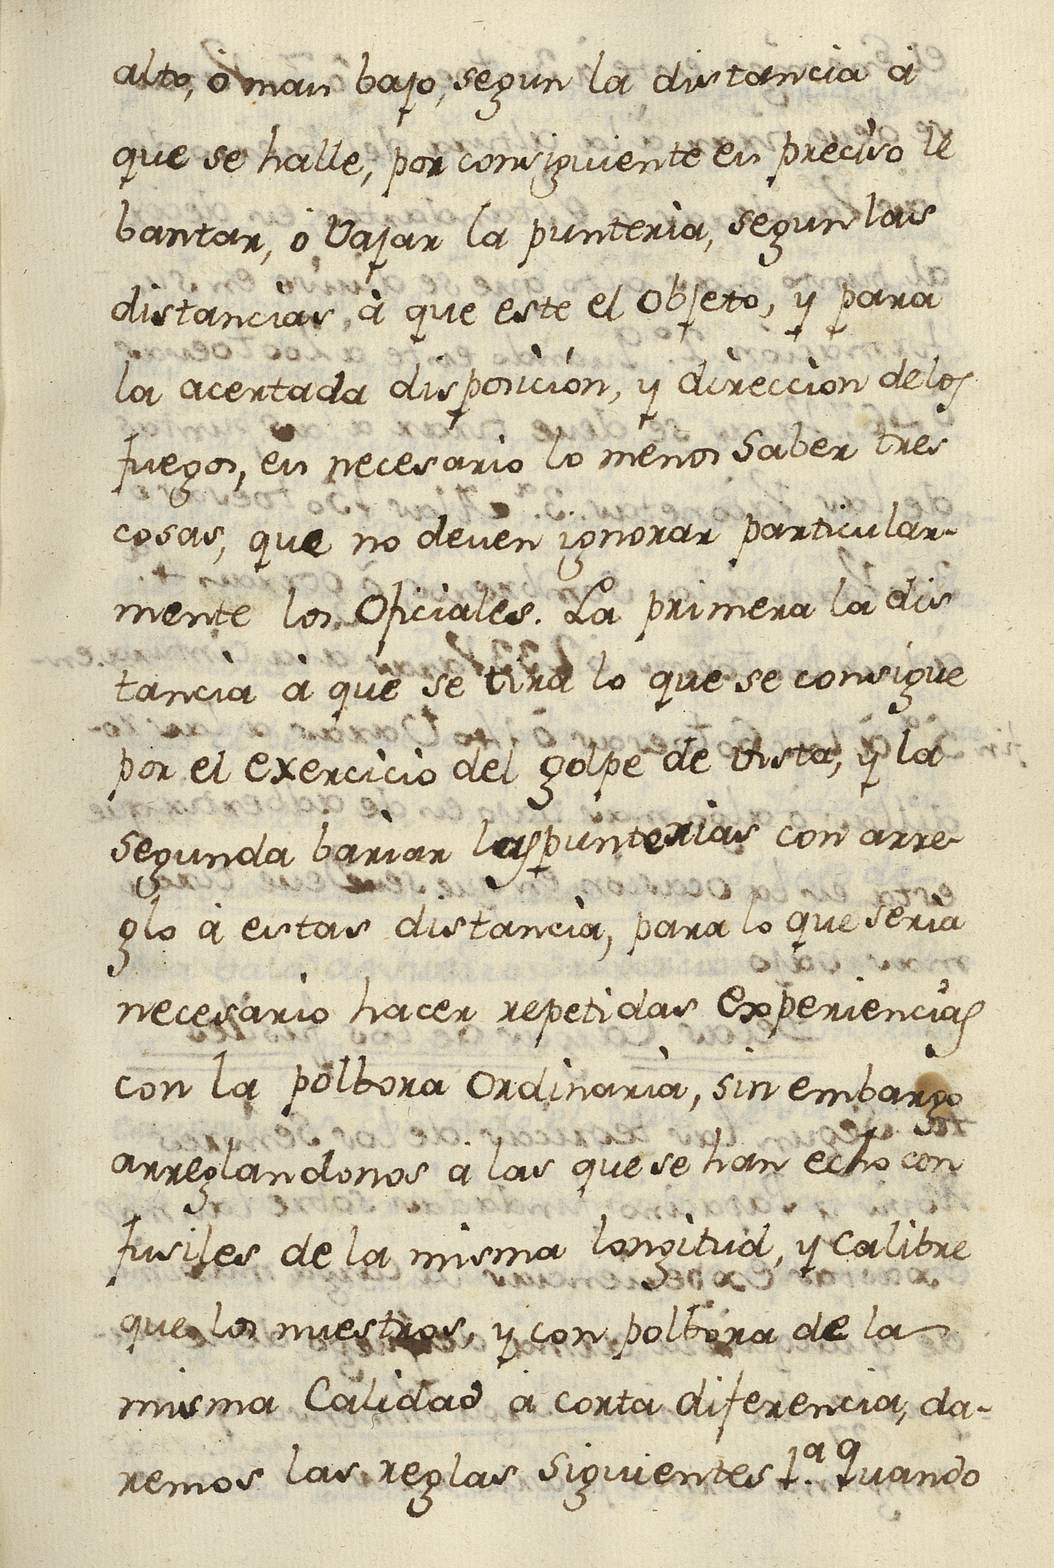 alto, ó mas bajo, segun la distancia à
que se halle, por consiguiente es preciso le
bantar, ó Vajar la punteria, segun las
distancias, à que este el Objeto, y para
la acertada disposición, y direccion de los
fuegos, es necesario lo menos Saber tres
cosas, que no deven ignorar particular-
mente los Oficiales. La primera la dis
tancia à que se tira lo que se consigue
por el exercicio del golpe de vista, y la
segunda bariar las punterias con arre-
glo à estas distancia, para lo que seria
necesario hacer repetidas experiencias
con la polbora Ordinaria, sin embargo
arreglandonos à las que se han echo con
fusiles de la misma longitud, y Calibre
que los nuestros, y con polbora de la
misma Calidad à corta diferencia, da-
remos las reglas siguientes 1.ª Quando